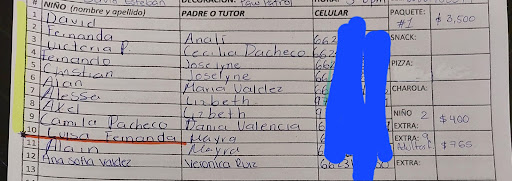 Esteban DECORACIÓN: Paw Patrol
# NIÑO (nombre y apellido) PADRE O TUTOR CELULAR PAQUETE:
1 David #1 $3,500
2 Fernanda Analí 662 SNACK:
3 Victoria P. Cecilia Pacheco 662
4 Fernando Joselyne 66 PIZZA:
5 Cristian Joselyne 66
6 Alan Maria Valdez 66 CHAROLA:
7 Alessa Lizbeth 97
8 Axel Lizbeth 9 NIÑO 2 $400
9 Camila Pacheco Dania Valencia 66 EXTRA:
10 Luisa Fernanda Mayra EXTRA: 9
11 Alain Mayra Adultos $765
12 Ana Sofia Valdez Veronica Ruiz 662 EXTRA: